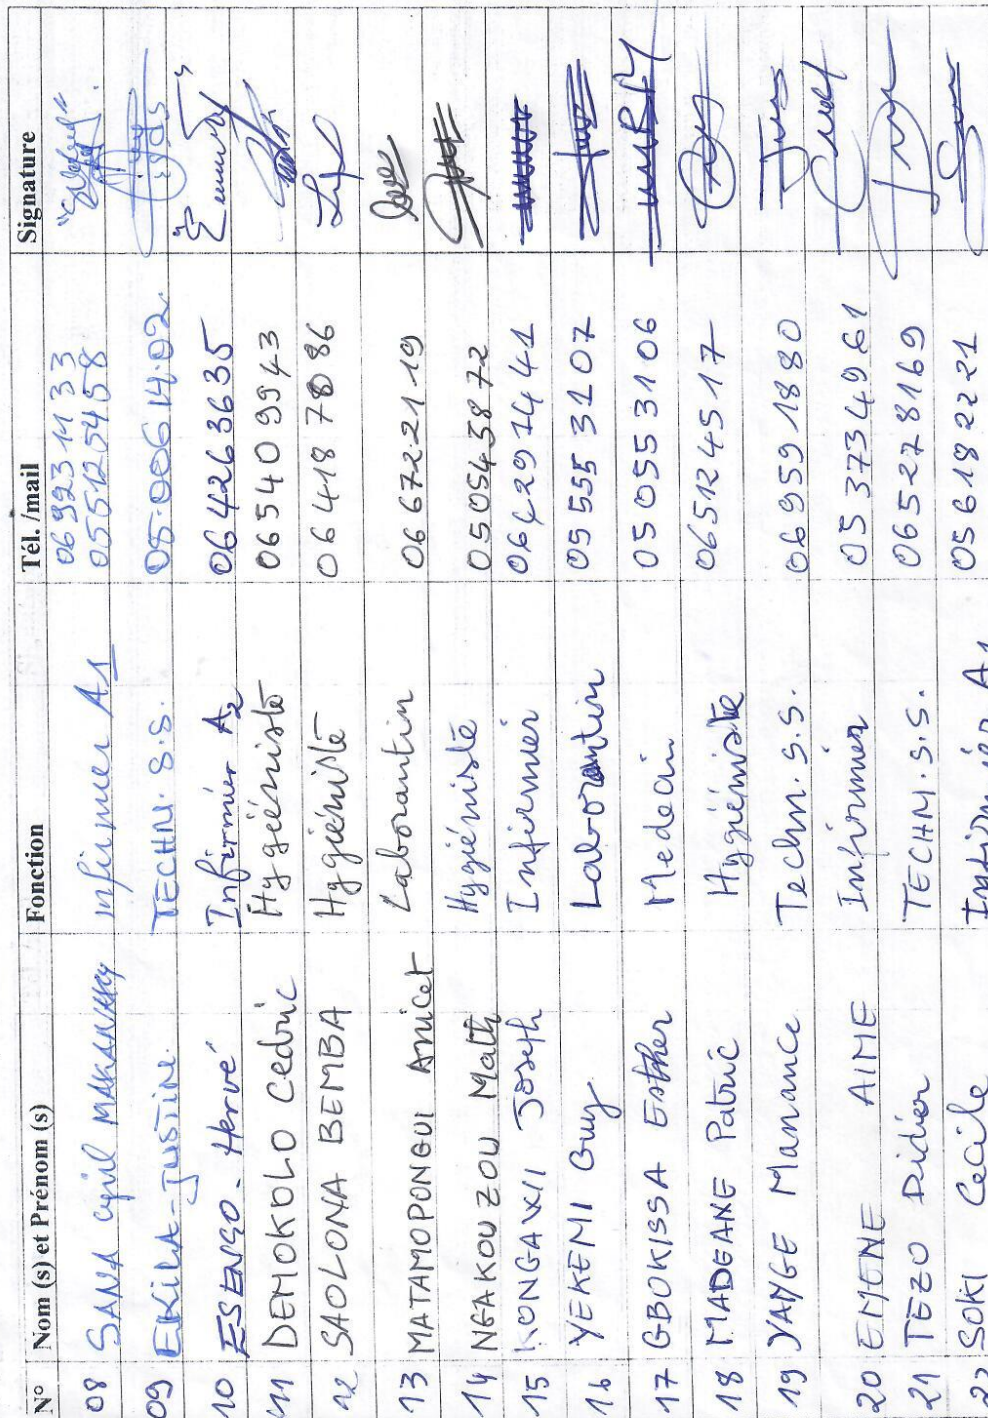 N° Nom (s) et Prénom (s) Fonction Tél. /mail Signature
08 SANA Cyril MAKANANY infirmier A1 06 923 11 33
055125458
09 EKILA-JUSTINE. TECHN. S.S. 05.006.14.02.
10 ESENGO - Hervé Infirmier A2 064263635
11 DEMOKOLO Cédric Hygiéniste 065409943
12 SAOLONA BEMBA Hygiéniste 064187886
13 MATAMOPONGUI Anicet Laborantin 066722119
14 NGAKOUZOU Math Hygiéniste 050543872
15 KONGAWII Joseph Infirmier 064297441
16 YEKEMI Guy Laborantin 055553107
17 GBOKISSA Esther Medecin 050553106
18 MADEANE Patric Hygiéniste 065124517
19 YANGE Manance Techn. S.S. 069591880
20 EMENE AIME Infirmier 053734961
21 TEZO Didier TECHN. S.S. 065278169
SOKI Cecile Infirmière A1 056182221